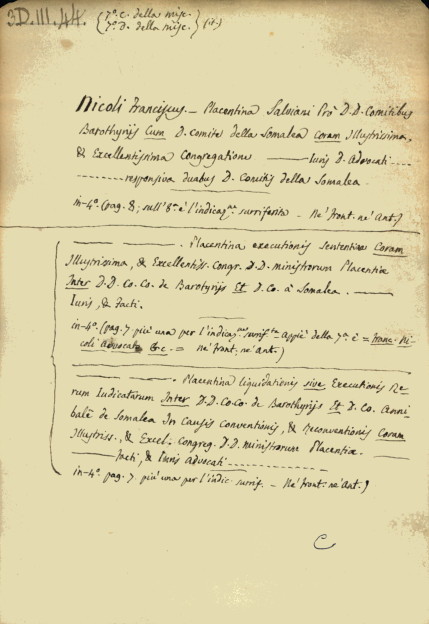 3D.III.44. { 7º. c. della misc. } (it.)
{ 7º. d. della misc. }
Nicoli Franciscus. – Placentina Salviani Pro D.D. Comitibus
Barothynijs Cum D. Comite della Somalea coram Illustrissima,
& Excellentissima Congregatione ——— Iuris D. Advocati ----
---------- responsiva duabus D. Comitis della Somalea.
in-4º. (pag. 8; sull' 8ª è l'indicazne surriferita – Ne' front. ne' ant.)
———————. Placentina executionis sententiae Coram
Illustrissima, & Excellentiss. Congr. D.D. ministrorum Placentiae
Inter D.D. Co. Co. de Barotynijs Et D. Co. à Somalea. ———
Iuris, & facti.
in-4º. (pag. 7 più una per l'indicazne surrifta – Appiè della 7ª è = Franc. Ni-
coli Advocat &c. = ne' front. ne' ant.)
———————. Placentina liquidationis sive Executionis Re-
rum Iudicatarum Inter D.D. Co Co. de Barothynijs Et D. Co. Anni-
balē de Somalea In Causis Conventionis, & Reconventionis Coram
Illustriss., & Excel. Congreg. D.D. Ministrorum Placentiae. ——
——— facti, & Iuris Advocati ---------------
in-4º. pag. 7. più una per l'indic. surrif. – Ne' front. ne' ant.)
C